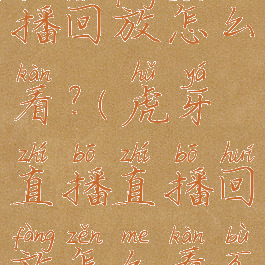 播回放怎么
kàn hǔ yá
看?(虎牙
zhí bō zhí bō huí
直播直播回
fàng zěn me kàn bù